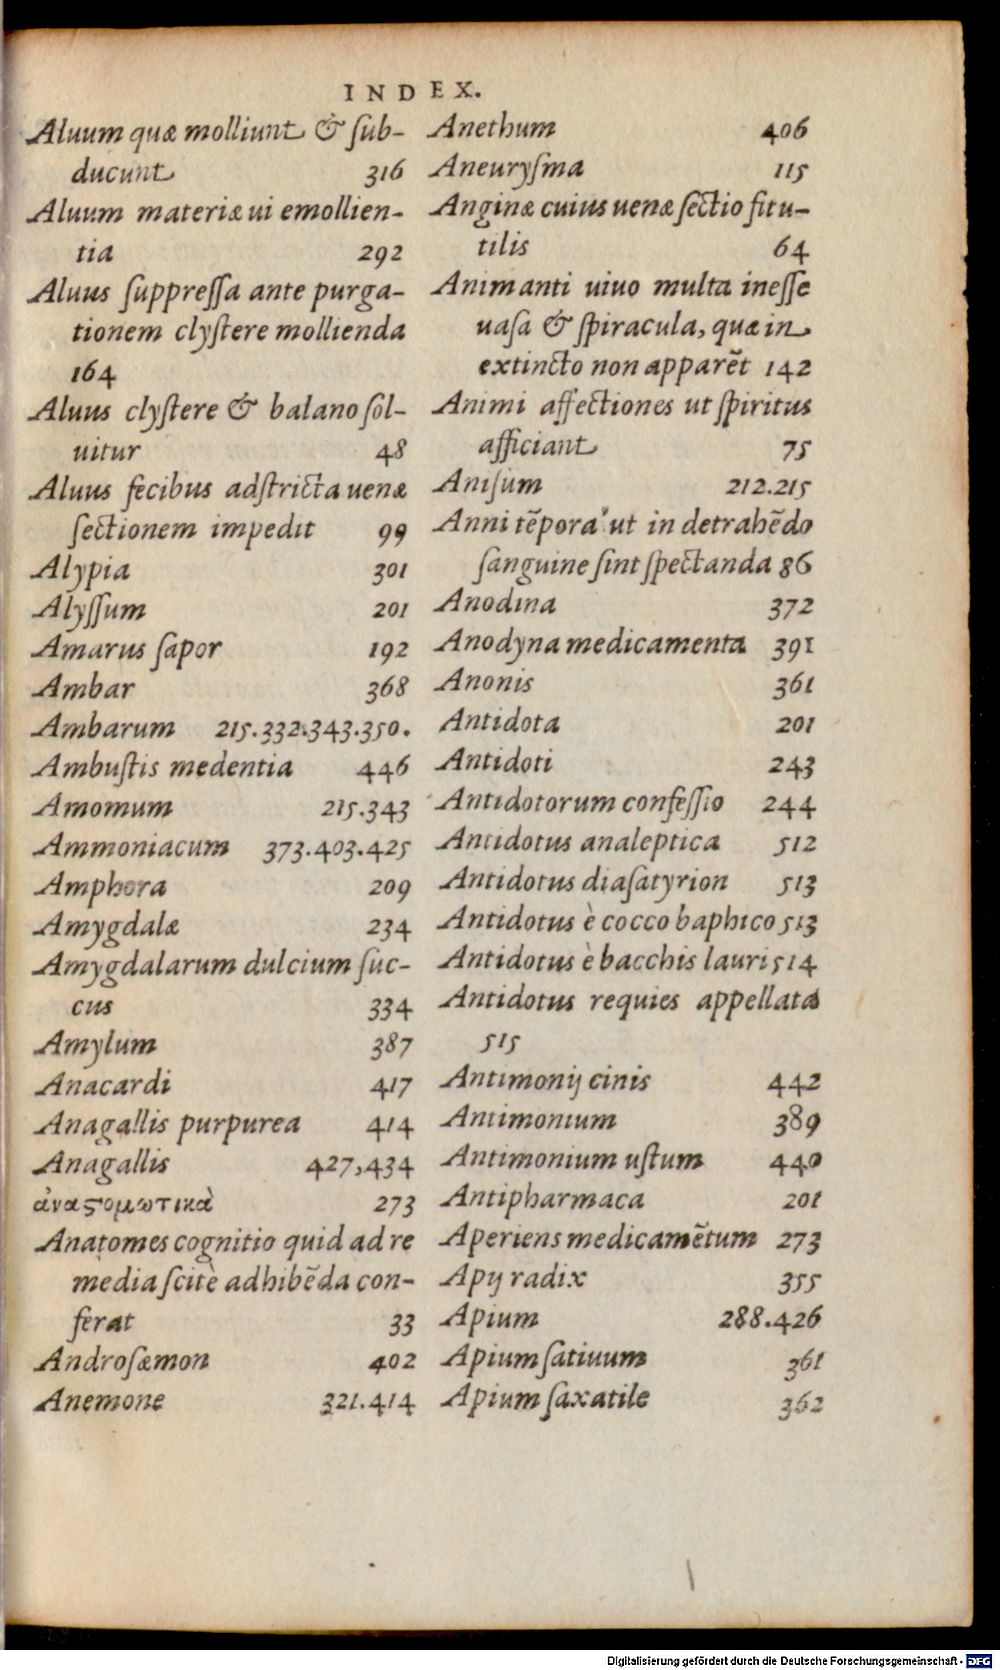 INDEX.
Aluum quæ molliunt & ſub-
ducunt 316
Aluum materiæ ui emollien-
tia 292
Aluus ſuppreſſa ante purga-
tionem clyſtere mollienda
164
Aluus clyſtere & balano ſol-
uitur 48
Aluus fecibus adſtricta uenæ
ſectionem impedit 99
Alypia 301
Alyſſum 201
Amarus ſapor 192
Ambar 368
Ambarum 215.332.343.350.
Ambuſtis medentia 446
Amomum 215.343
Ammoniacum 373.403.425
Amphora 209
Amygdalæ 234
Amygdalarum dulcium ſuc-
cus 334
Amylum 387
Anacardi 417
Anagallis purpurea 414
Anagallis 427,434
ἀναϛομωτικὰ 273
Anatomes cognitio quid ad re
media ſcitè adhibẽda con-
ferat 33
Androſæmon 402
Anemone 321.414
Anethum 406
Aneuryſma 115
Anginæ cuius uenæ ſectio fit u-
tilis 64
Animanti uiuo multa ineſſe
uaſa & ſpiracula, quæ in
extincto non apparẽt 142
Animi affectiones ut ſpiritus
afficiant 75
Aniſum 212.215
Anni tẽpora ut in detrahẽdo
ſanguine ſint ſpectanda 86
Anodina 372
Anodyna medicamenta 391
Anonis 361
Antidota 201
Antidoti 243
Antidotorum confeſſio 244
Antidotus analeptica 512
Antidotus diaſatyrion 513
Antidotus è cocco baphico 513
Antidotus è bacchis lauri 514
Antidotus requies appellata
515
Antimonij cinis 442
Antimonium 389
Antimonium uſtum 440
Antipharmaca 201
Aperiens medicamẽtum 273
Apij radix 355
Apium 288.426
Apium ſatiuum 361
Apium ſaxatile 362
Digitalisierung gefördert durch die Deutsche Forschungsgemeinschaft - DFG